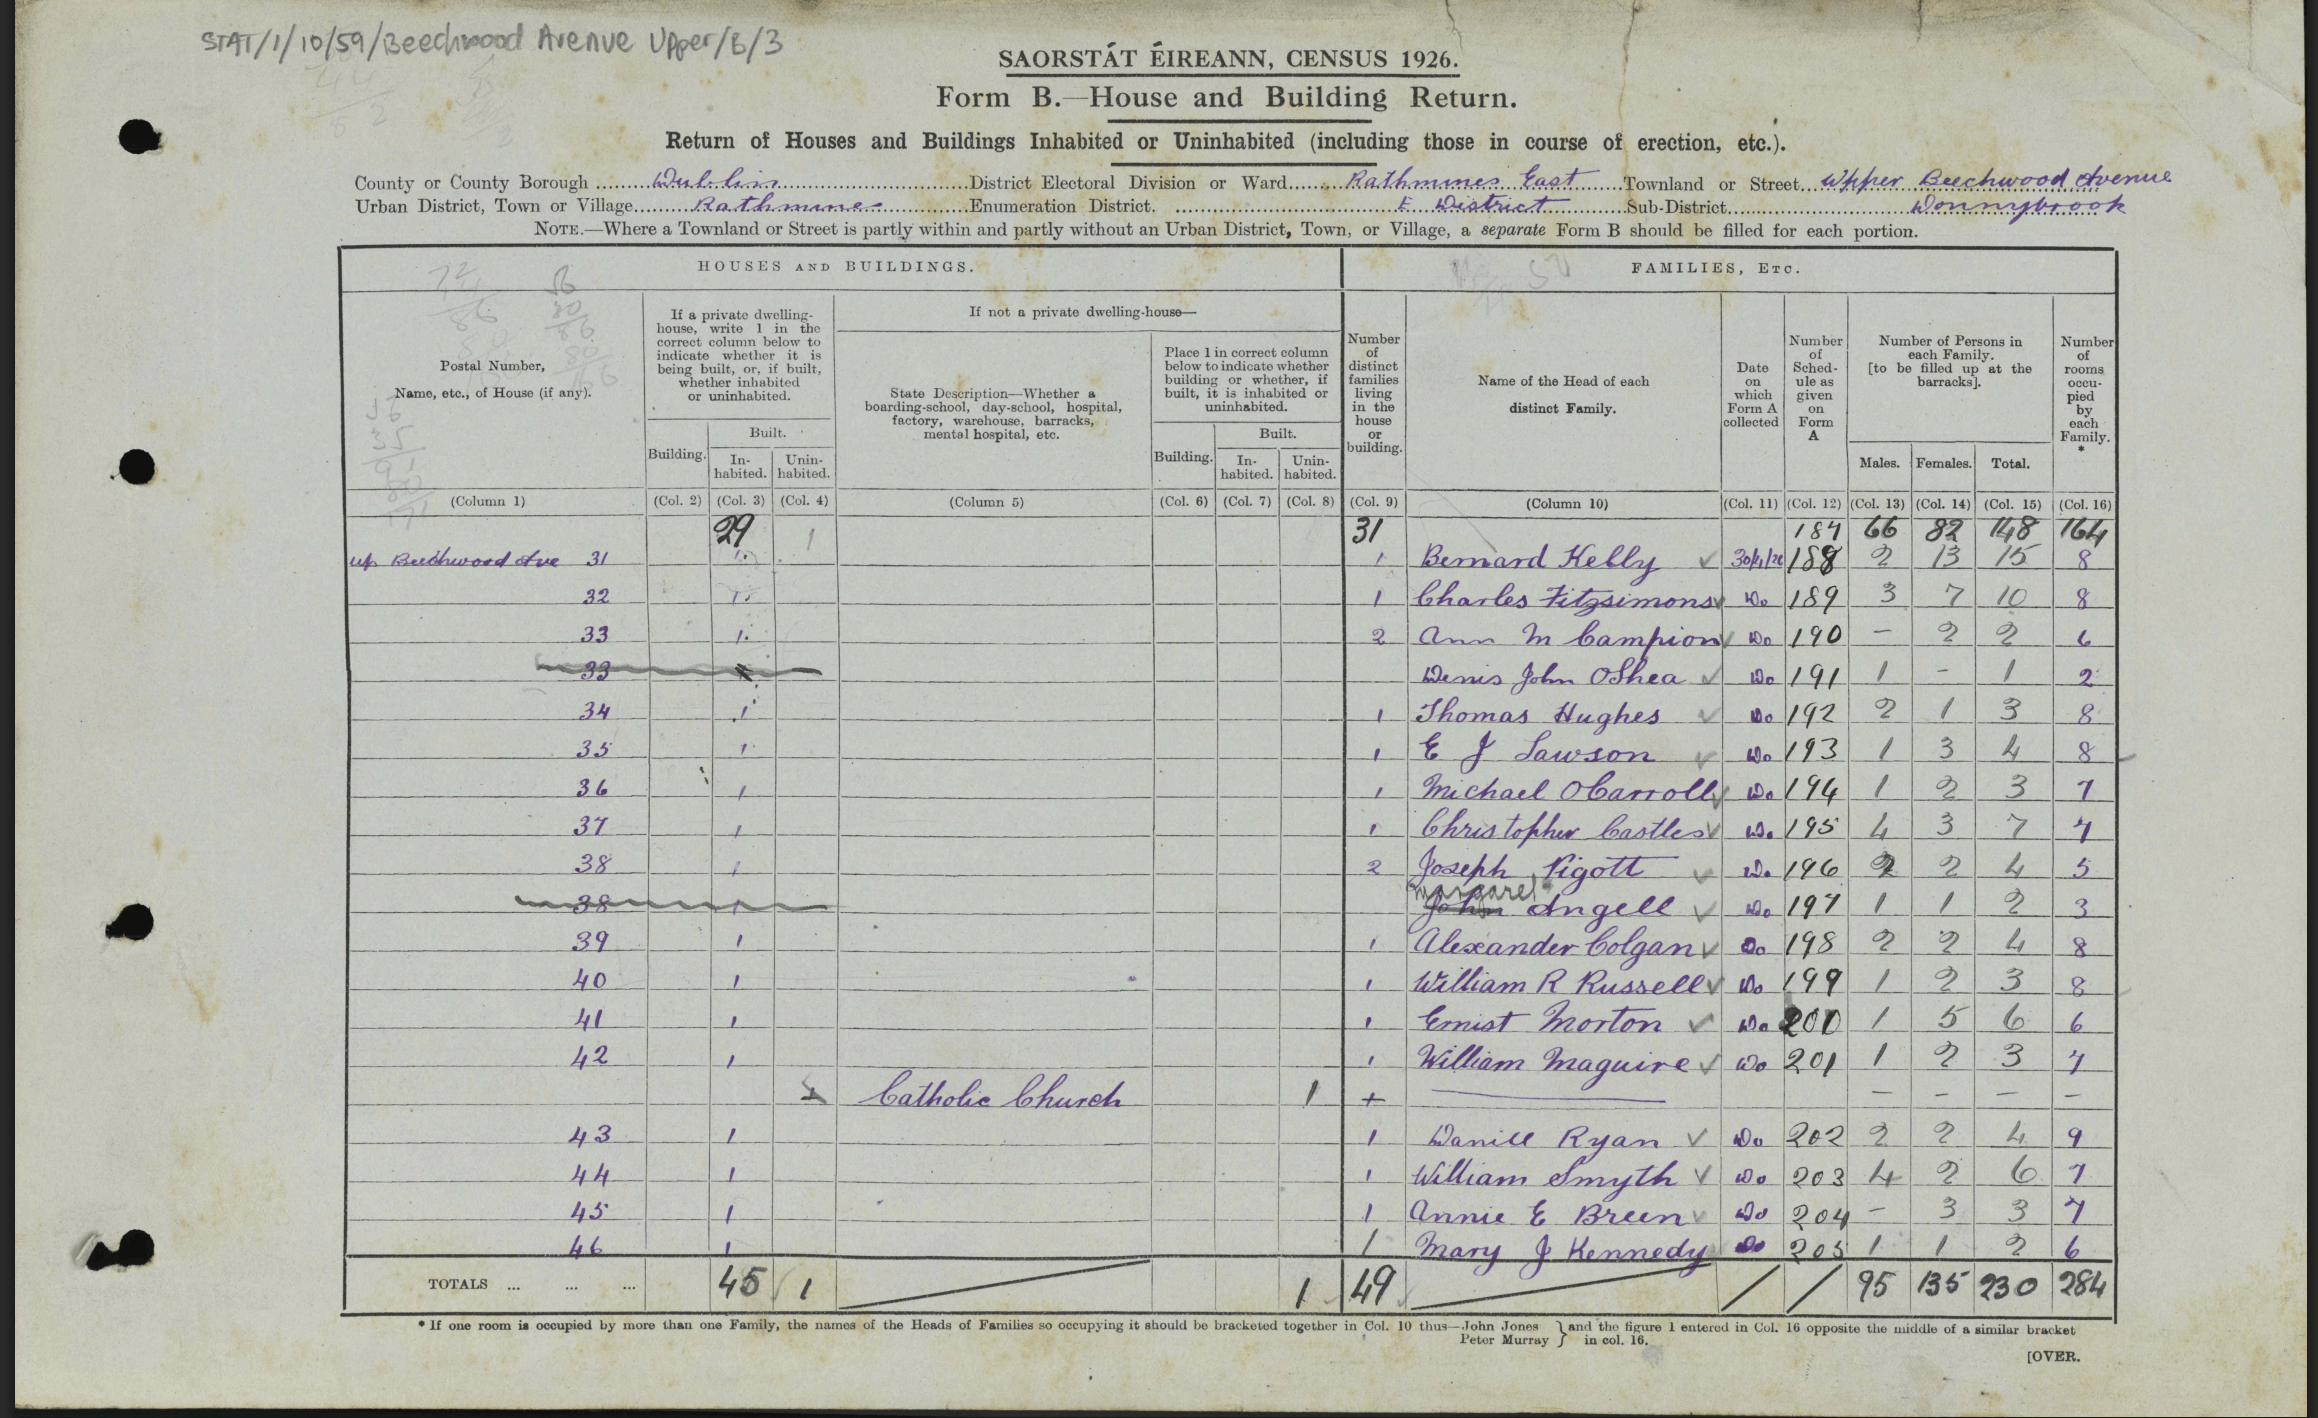 STAT/1/10/59/Beechwood Avenue Upper/B/3
SAORSTÁT ÉIREANN, CENSUS 1926.
Form B.—House and Building Return.
Return of Houses and Buildings Inhabited or Uninhabited (including those in course of erection, etc.).
County or County Borough Dublin District Electoral Division or Ward Rathmines East Townland or Street Upper Beechwood Avenue
Urban District, Town or Village Rathmines Enumeration District. E District Sub-District Donnybrook
NOTE.—Where a Townland or Street is partly within and partly without an Urban District, Town, or Village, a separate Form B should be filled for each portion.
HOUSES AND BUILDINGS.
FAMILIES, ETC.
Postal Number,
Name, etc., of House (if any).
If a private dwelling-
house, write 1 in the
correct column below to
indicate whether it is
being built, or, if built,
whether inhabited
or uninhabited.
Building.
Built.
In-
habited.
Unin-
habited.
If not a private dwelling-house—
State Description—Whether a
boarding-school, day-school, hospital,
factory, warehouse, barracks,
mental hospital, etc.
Place 1 in correct column
below to indicate whether
building or whether, if
built, it is inhabited or
uninhabited.
Building.
Built.
In-
habited.
Unin-
habited.
Number
of
distinct
families
living
in the
house
or
building.
Name of the Head of each
distinct Family.
Date
on
which
Form A
collected
Number
of
Sched-
ule as
given
on
Form
A
Number of Persons in
each Family.
[to be filled up at the
barracks].
Males. Females. Total.
Number
of
rooms
occu-
pied
by
each
Family.
*
(Column 1) (Col. 2) (Col. 3) (Col. 4) (Column 5) (Col. 6) (Col. 7) (Col. 8) (Col. 9) (Column 10) (Col. 11) (Col. 12) (Col. 13) (Col. 14) (Col. 15) (Col. 16)
29 1 31 187 66 82 148 164
up Beechwood Ave 31 1 1 Bernard Kelly 30/4/26 188 2 13 15 8
32 1 1 Charles Fitzsimons Do 189 3 7 10 8
33 1 2 Ann M Campion Do 190 – 2 2 6
33 Denis John OShea Do 191 1 – 1 2
34 1 1 Thomas Hughes Do 192 2 1 3 8
35 1 1 E J Lawson Do 193 1 3 4 8
36 1 1 Michael OCarroll Do 194 1 2 3 7
37 1 1 Christopher Castles Do 195 4 3 7 7
38 1 2 Joseph Pigott Do 196 2 2 4 5
Margaret
38 1 John Angell Do 197 1 1 2 3
39 1 1 Alexander Colgan Do 198 2 2 4 8
40 1 1 William R Russell Do 199 1 2 3 8
41 1 1 Ernist Morton Do 200 1 5 6 6
42 1 1 William Maguire Do 201 1 2 3 7
Catholic Church 1 + – – – –
43 1 1 Daniel Ryan Do 202 2 2 4 9
44 1 1 William Smyth Do 203 4 2 6 7
45 1 1 Annie E Breen Do 204 – 3 3 7
46 1 1 Mary J Kennedy Do 205 1 1 2 6
TOTALS ... ... ... 45 1 1 49 95 135 230 284
* If one room is occupied by more than one Family, the names of the Heads of Families so occupying it should be bracketed together in Col. 10 thus—John Jones } and the figure 1 entered in Col. 16 opposite the middle of a similar bracket
Peter Murray } in col. 16.
[OVER.